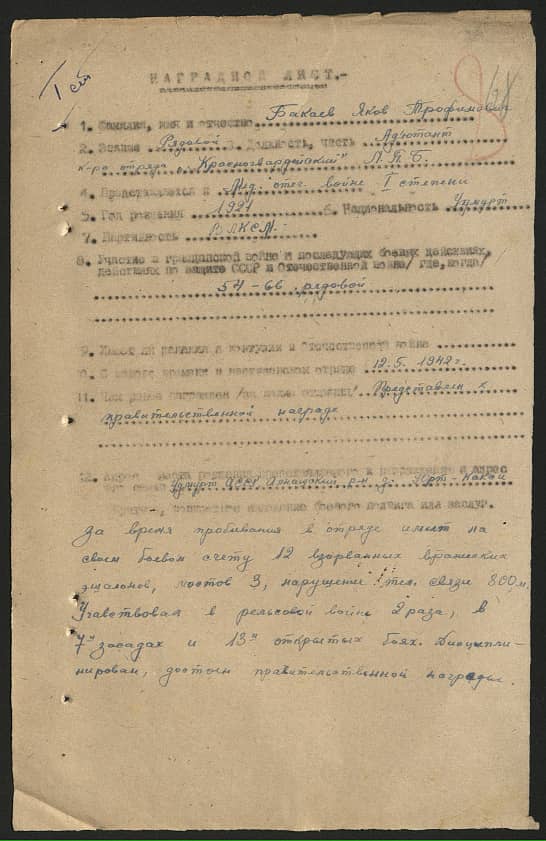 I ст
НАГРАДНОЙ ЛИСТ.-
1. Фамилия, имя и отчество Бакаев Яков Трофимович
2. Звание Рядовой 3. Должность, часть Адютант
к-ра отряда "Красногвардейский" Л.П.Б.
4. Представляется к Мед. отеч. войне I степени
5. Год рождения 6. Национальность Удмурт
7. Партийность ВЛКСМ.-
8. Участие в гражданской войне и последующих боевых действиях,
действиях по защите СССР и Отечественной войне/ где, когда/
54-66 рядовой
9. Имеет ли ранения и контузии в Отечественной войне
10. С какого времени в партизанском отряде 12.5.1942 г.
11. Чем ранее награжден /за какие отличия/ Представлен к
правительственной награде
12. адрес и адрес
Удмурт АССР р-н д. Юрт-
конкретное изложение боевого подвига или заслуг.
За время пробивания в отряде имеет на
своем боевом счету 12 взорванных вражеских
эшалонов, мостов 3, нарушение тел. связи 800 м.
Учавствовал в рельсовой войне 2 раза, в
7и засадах и 13и открытых боях. Дисципли-
нирован, достоен правительственной награды.